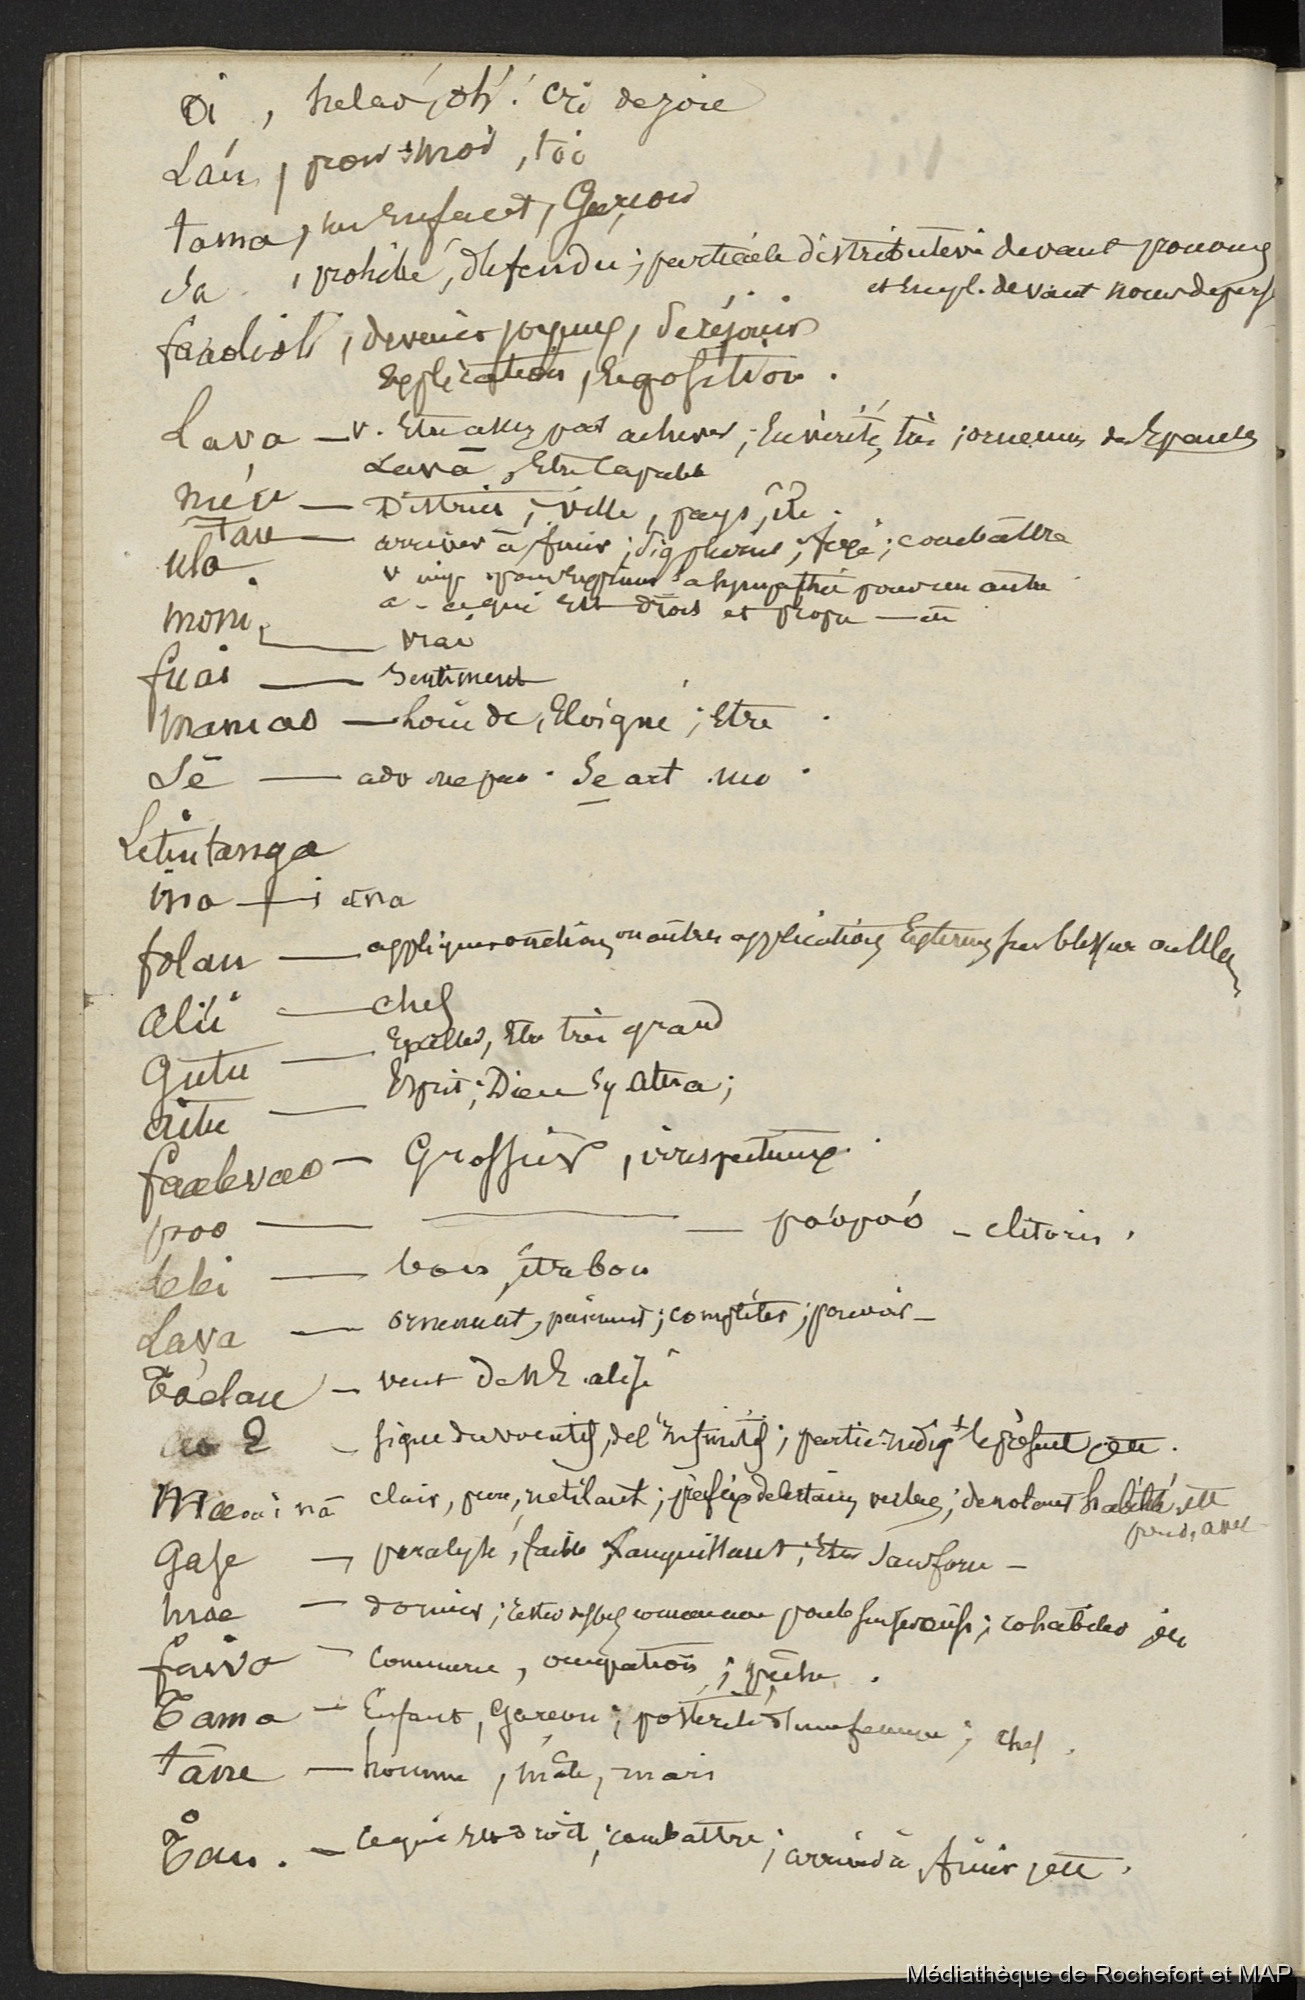 Oi, helas, oh! Cri de joie
Lau, pour moi, toi
tama, un Enfant, Garçon
Sa, prohibé, défendu; particule distributive devant pronoms
et empl. devant noms de pers.
faaolioli, devenir joyeux, se réjouir
Explication, Exposition.
Lava — v. Etre assez pas achever; En vérité, très; ornemens des Epaules
Lavā, Etre Capable
méu — District, ville, pays, île.
Tau — arriver à, finir; fixé; combattre
ulo. v imp pour Exprimer la sympathie pour un autre
a - ce qui Est droit et propre — etc
moni — vrai
fuai — Sentiment
mamao — loin de, Eloigné; Etre.
Sē — adv ne pas. Se art. un.
Letiutanga
ina — i ana
folau — appliquer onctions ou autres applications Externes sur blessure
alii — chef
Gutu — Etre très grand
aitu — Esprit; Dieu Sy Atua;
faalevao — Grossier, irrespectueux.
poo — poopoó — clitoris.
lelei — bon, être bon
Lava — ornement, compléter; pouvoir —
Toelau — vent de NE alisé
E — signe du vocatif, de l'infinitif; partic. indiqt le présent, etc.
Ma — clair, pur, rutilant; préfixe de certains verbes; denotant habilité, etc
prend. avec
Gase — paralysé, faible, languissant; Etre Sans force —
moe — dormir; cohabiter
faiva — Commerce, occupation; pêche.
Tama — Enfant, Garçon; postérité d'une femme; chef.
tane — homme, mâle, mari
Tau. — Ce qui Est droit; combattre; arriver à, finir, etc.
Médiathèque de Rochefort et MAP